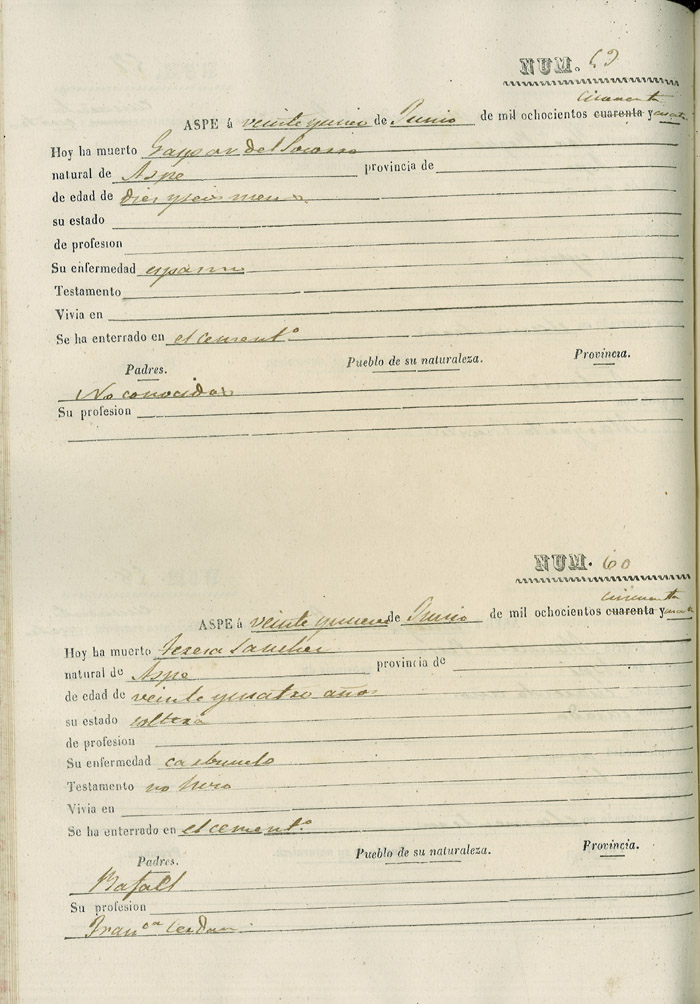 NUM. 59
cincuenta
ASPE á veinte y cinco de Junio de mil ochocientos cuarenta y cuatro
Hoy ha muerto Gaspar del Socorro
natural de Aspe provincia de
de edad de diez y seis meses
su estado
de profesion
Su enfermedad espasmo
Testamento
Vivia en
Se ha enterrado en el cement.º
Padres. Pueblo de su naturaleza. Provincia.
No conocidos
Su profesion
NUM. 60
cincuenta
ASPE á veinte y de Junio de mil ochocientos cuarenta y cuatro
Hoy ha muerto Teresa Sanchez
natural de Aspe provincia de
de edad de veinte y cuatro años
su estado soltera
de profesion
Su enfermedad carbunclo
Testamento no hizo
Vivia en
Se ha enterrado en el cement.º
Padres. Pueblo de su naturaleza. Provincia.
Rafael
Su profesion
Fran.ca Cerdan